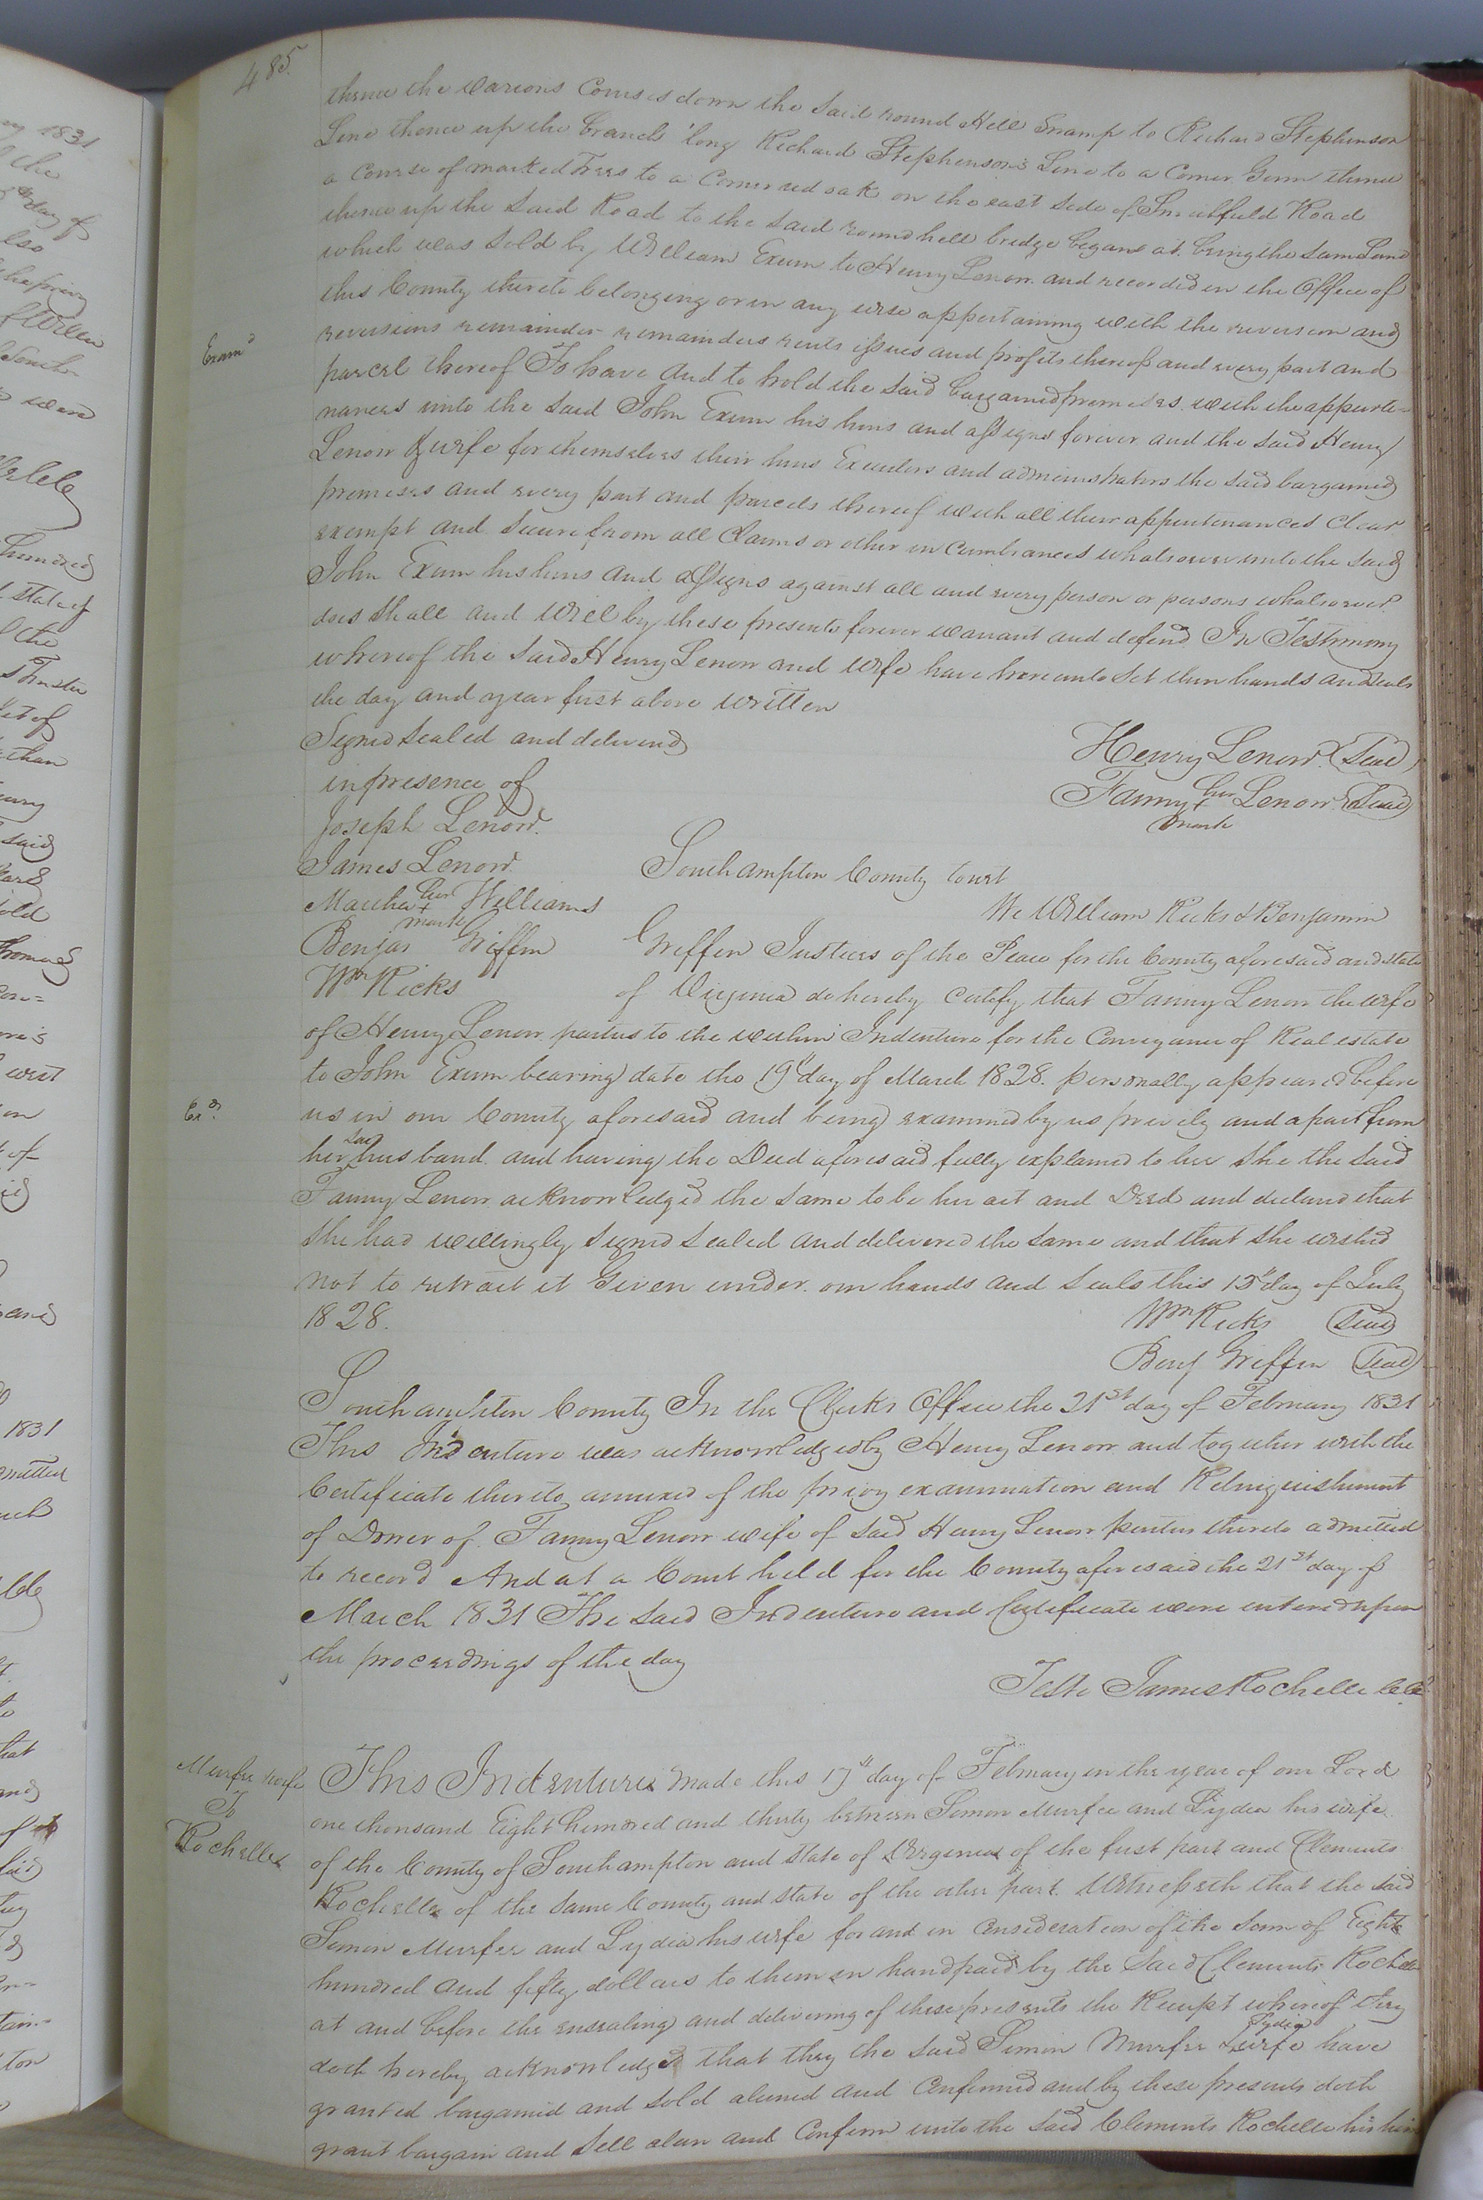 485.
thence the various Courses down the said round Hill Swamp to Richard Stephenson
Line thence up the branch 'long Richard Stephenson's Line to a Corner Gum thence
a Course of marked Trees to a Corner red oak on the east side of Smithfield Road
thence up the said Road to the said round hill bridge began at. being the same Land
which was sold by William Exum to Henry Lenow and recorded in the Office of
this County thereto belonging or in any wise appertaining with the reversion and
reversions remainder remainders rents issues and profits thereof and every part and
Exam.d
parcel thereof To have and to hold the said bargained premises with the appurte=
nances unto the said John Exum his heirs and assigns forever and the said Henry
Lenow & wife for themselves their heirs Executors and administrators the said bargained
premises and every part and parcels thereof with all their appurtenances clear
exempt and secure from all Claims or other incumbrances whatsoever unto the said
John Exum his heirs and assigns against all and every person or persons whatsoever
does shall and will by these presents forever warrant and defend In Testimony
whereof the said Henry Lenow and wife have hereunto set their hands and seals
the day and year first above written
Signed sealed and delivered
in presence of
Henry Lenow (Seal)
Fanny her + mark Lenow (Seal)
Joseph Lenow.
James Lenow
Martha her + mark Williams
Benja Griffin
Wm Ricks
Southampton County Court
We William Ricks & Benjamin
Griffin Justices of the Peace for the County aforesaid and state
of Virginia do hereby certify that Fanny Lenow the wife
of Henry Lenow parties to the within Indenture for the Conveyance of Real estate
to John Exum bearing date the 19th day of March 1828. personally appeared before
Ex.d
us in our County aforesaid and being examined by us privily and apart from
her said husband and having the Deed aforesaid fully explained to her she the said
Fanny Lenow acknowledged the same to be her act and Deed and declared that
she had willingly signed sealed and delivered the same and that she wished
not to retract it Given under our hands and seals this 15th day of July
1828.
Wm Ricks (Seal)
Benj Griffin (Seal)
Southampton County In the Clerks Office the 21st day of February 1831
This Indenture was acknowledged by Henry Lenow and together with the
Certificate thereto annexed of the privy examination and Relinquishment
of Dower of Fanny Lenow wife of said Henry Lenow parties thereto admitted
to record And at a Court held for the County aforesaid the 21st day of
March 1831 The said Indenture and Certificate were entered upon
the proceedings of the day
Teste James Rochelle C.C.
Murfee & wife
To
Rochelle
This Indenture made this 17th day of February in the year of our Lord
one thousand Eight hundred and thirty between Simon Murfee and Lydia his wife
of the County of Southampton and state of Virginia of the first part and Clements
Rochelle of the same County and state of the other part Witnesseth that the said
Simon Murfee and Lydia his wife for and in Consideration of the sum of Eight
hundred and fifty dollars to them in hand paid by the Said Clements Rochelle
at and before the ensealing and delivering of these presents the Receipt whereof they
doth hereby acknowledge that they the said Simon Murfee & Lydia wife have
granted bargained and sold aliened and Confirmed and by these presents doth
grant bargain and sell alien and Confirm unto the said Clements Rochelle his heirs